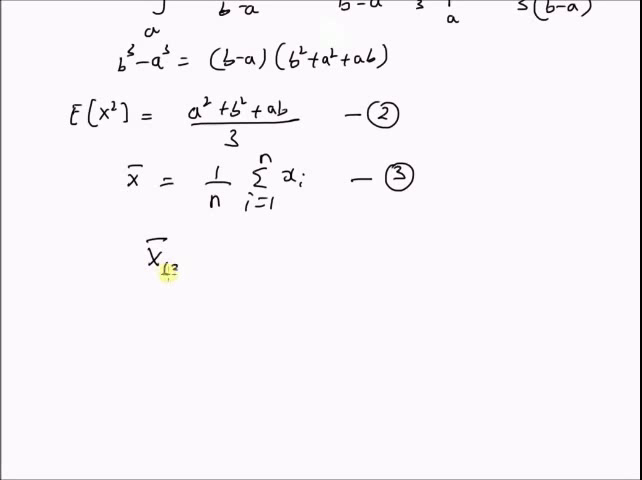 ∫ a b-a b-a 3 a 3(b-a)
b³-a³ = (b-a)(b²+a²+ab)
E[X²] = a²+b²+ab / 3 — ②
x̄ = 1/n Σ i=1 n xi — ③
X̄